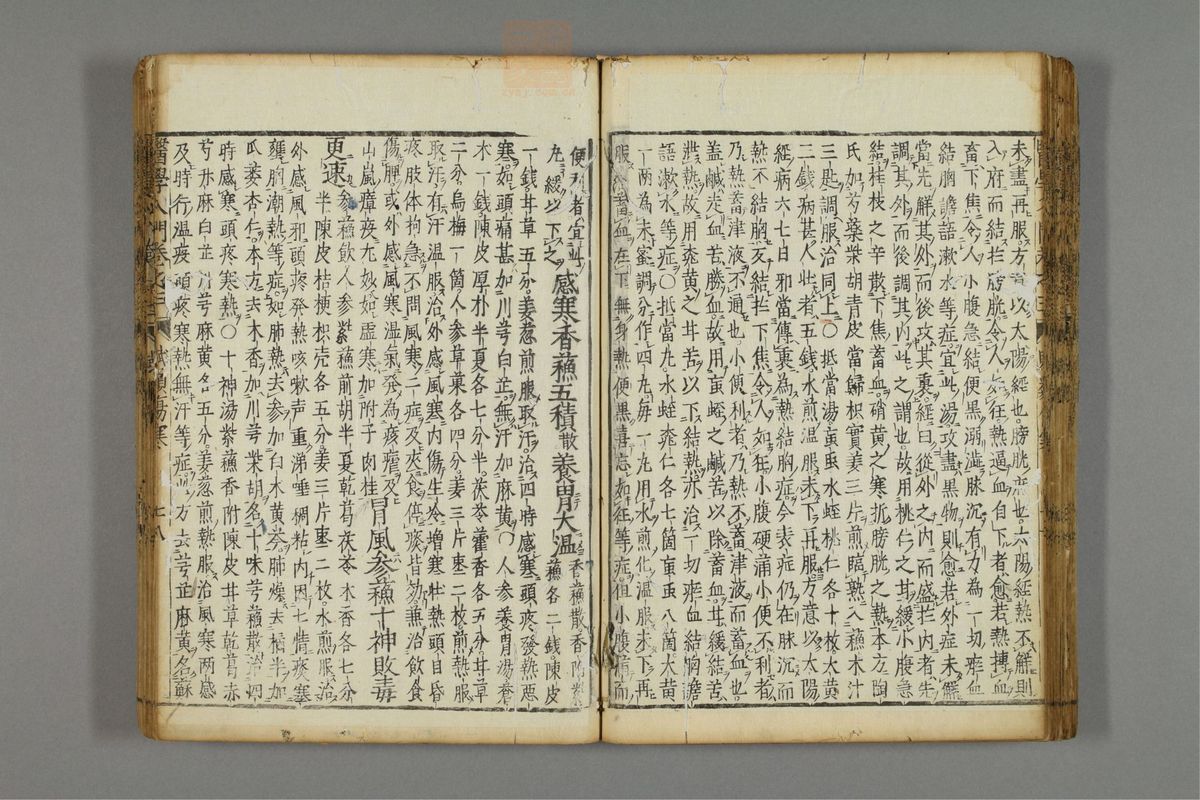 未盡再服方意以太陽經也膀胱府也太陽經熱不觧則
入府而結於膀胱令人如狂熱逼血自下者愈若熱搏血
畜下焦令人小腹急結便黑溺澁脉沉有力為一切瘀血
結胸譫語漱水等症宜此湯攻盡黑物則愈若外症未觧
當先觧其外而後攻其裏經曰從外之内而盛於内者先
調其外而後調其内此之謂也故用桃仁之甘緩小腹急
結桂枝之辛散下焦蓄血硝黄之寒折膀胱之熱本方陶
氏加芍藥柴胡青皮當歸枳實姜三片煎臨熱入蘇木汁
三匙調服治同上〇抵當湯䖟虫水蛭桃仁各十枚大黄
二錢病甚人壮者五錢水煎温服未下再服方意以太陽
經病六七日邪當傳裏為熱結胸症今表症仍在脉沉而
熱不結胸反結於下焦令人如狂小腹硬滿小便不利者
乃熱蓄津液不通也小便利者乃熱不蓄津液而蓄血也
盖鹹走血苦勝血故用䖟蛭之鹹苦以除蓄血甘緩結苦
泄熱故用桃黄之甘苦以下結熱亦治一切瘀血結胸譫
語漱水等症〇抵當九水蛭桃仁各七箇䖟虫八箇大黄
一両為末蜜調分作四九毎一九用水煎化温服未下再
服治蓄血在下無身熱便黒喜忘如狂等症但小腹滿而
便利者宜此
九緩以下之
感寒香蘇五積散養胃大温
香蘇散香附紫
蘇各二錢陳皮
一錢甘草五分姜葱煎服取汗治四時感寒頭疼發熱惡
寒如頭痛甚加川芎白芷無汗加麻黄〇人参養胃湯蒼
木一錢陳皮厚朴半夏各七分半茯苓藿香各五分甘草
二分烏梅一箇人参草果各四分姜三片枣二枚煎熱服
取汗有汗温服治外感風寒内傷生冷增寒壮熱頭目昏
疼肢体拘急不問風寒二症及夾食停痰皆効兼治飲食
傷脾或外感風寒温氣發為痎瘧及
山嵐瘴疫尤妙如虚寒加附子肉桂
冐風参蘇十神敗毒
更速
参蘇飲人参紫蘇前胡半夏乾葛茯苓木香各七分
半陳皮桔梗枳壳各五分姜三片枣二枚水煎服治
外感風邪頭疼發熱咳嗽声重涕唾稠粘内因七情痰寒
壅胸潮熱等症如肺熱去参加白木黄芩肺燥去橘半加
瓜蒌杏仁本方去木香加川芎柴胡名十味芎蘇散治四
時感寒頭疼寒熱〇十神湯紫蘇香附陳皮甘草乾葛赤
芍升麻白芷川芎麻黄各五分姜葱煎熱服治風寒两感
及時行温疫頭疼寒熱無汗等症此方去芎芷麻黄名蘇